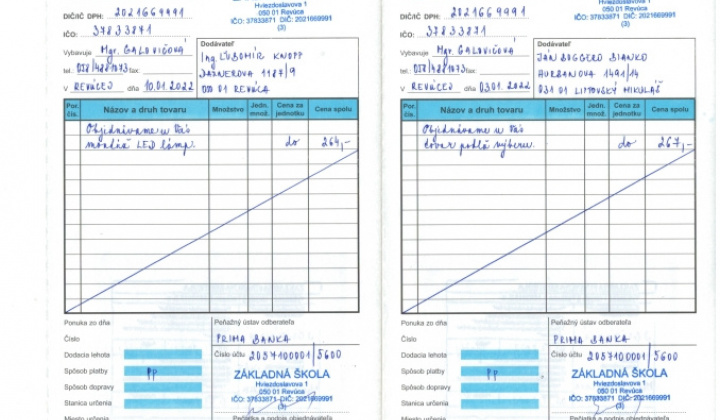 Hviezdoslavova 1
DIČ/IČ DPH: 2021669991
050 01 Revúca
IČO: 37833871 DIČ: 2021669991
IČO: 37833871
(3)
Vybavuje Mgr. GALOVIČOVÁ
Dodávateľ
Ing. ĽUBOMÍR KNOPP
tel.: 058/4881073 fax:
DAXNEROVA 1187/9
V REVÚCEJ dňa 10.01.2022
050 01 REVÚCA
Por. čís. Názov a druh tovaru Množstvo Jedn. množ. Cena za jednotku Cena spolu
Objednávame u Vás
montáž LED lámp. do 264,-
Ponuka zo dňa
Peňažný ústav odberateľa
Číslo
PRIMA BANKA
Dodacia lehota
Číslo účtu 2037100001/5600
Spôsob platby PP
ZÁKLADNÁ ŠKOLA
Hviezdoslavova 1
Spôsob dopravy
050 01 Revúca
Stanica určenia
IČO: 37833871 DIČ: 2021669991
(3)
Miesto určenia
Pečiatka a podpis objednávateľa
Hviezdoslavova 1
DIČ/IČ DPH: 2021669991
050 01 Revúca
IČO: 37833871 DIČ: 2021669991
IČO: 37833871
(3)
Vybavuje Mgr. GALOVIČOVÁ
Dodávateľ
JAN BOGGERO BIANKO
tel.: 058/4881073 fax:
HURBANOVA 1491/14
V REVÚCEJ dňa 03.01.2022
031 01 LIPTOVSKÝ MIKULÁŠ
Por. čís. Názov a druh tovaru Množstvo Jedn. množ. Cena za jednotku Cena spolu
Objednávame u Vás
tovar podľa výberu. do 267,-
Ponuka zo dňa
Peňažný ústav odberateľa
Číslo
PRIMA BANKA
Dodacia lehota
Číslo účtu 2037100001/5600
Spôsob platby PP
ZÁKLADNÁ ŠKOLA
Hviezdoslavova 1
Spôsob dopravy
050 01 Revúca
Stanica určenia
IČO: 37833871 DIČ: 2021669991
(3)
Miesto určenia
Pečiatka a podpis objednávateľa